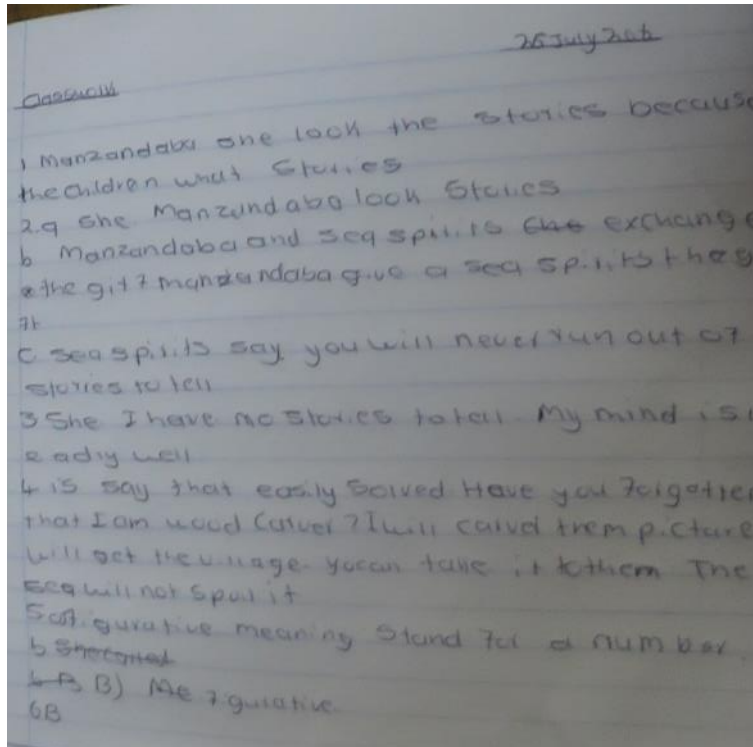 26 July 2016
Classwork
1 Manzandaba she look the stories because
the children what stories
2.a she Manzandaba look stories
b Manzandaba and sea spirits exchange
the gift manzandaba give a sea spirits the
7t
C sea spirits say you will never run out of
stories to tell
3 She I have no stories to tell My mind is
eadiy well
4 is say that easily Solved Have you forgotten
that I am wood Carver? I will carved them picture
will get the village. yocan take it to them The
sea will not spoil it
5 a figurative meaning Stand for a number.
b
B) Me figurative
6B